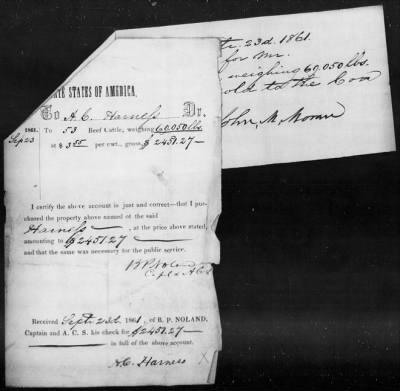 TE STATES OF AMERICA,
To A. C. Harness Dr.
1861.
Sep 23
To 53 Beef Cattle, weighing 60.050 lbs.
at $ per cwt., gross, $2451.27—
I certify the above account is just and correct—that I pur-
chased the property above named of the said
Harness, at the price above stated,
amounting to $2451.27—
and that the same was necessary for the public service.
B P Noland
Capt & A C S
Received Sept 23d, 1861, of B. P. NOLAND,
Captain and A. C. S. his check for $2451.27—
in full of the above account.
A. C. Harness
23d. 1861.
for Mr.
weighing 60.050 lbs.
old to the Con
John, M, Moran